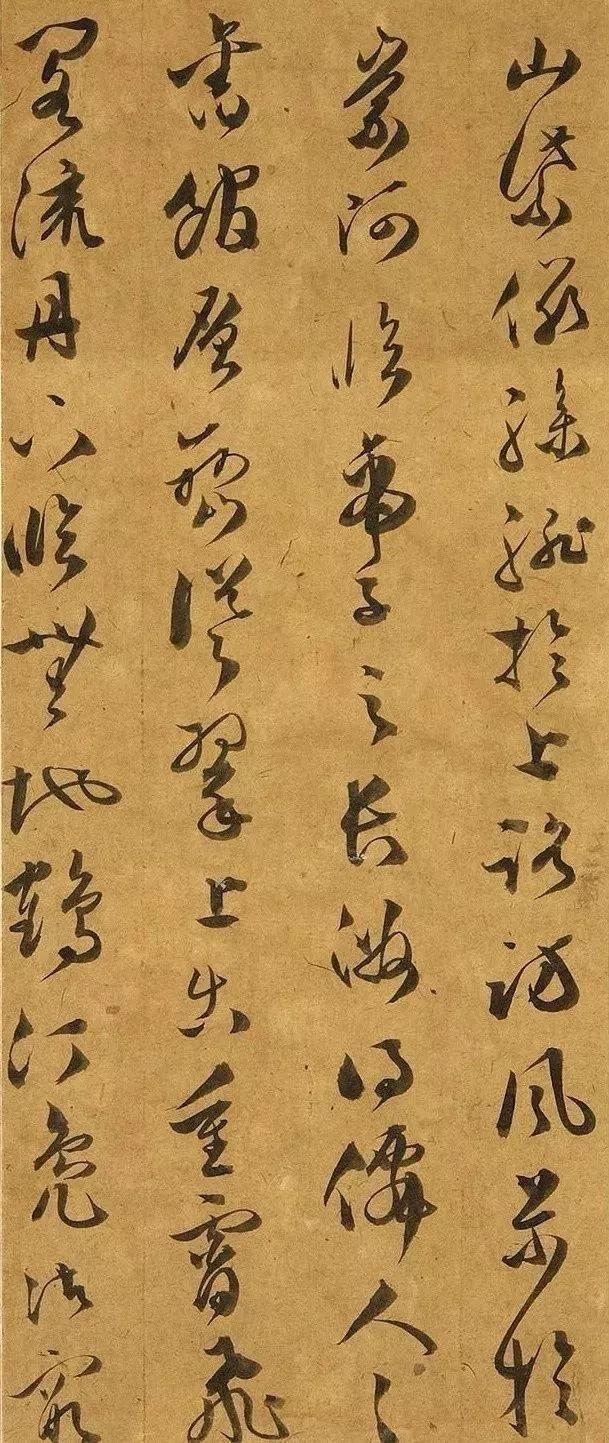 山紫儼驂騑於上路訪風景於
崇阿臨帝子之長洲得僊人之
舊舘層巒聳翠上出重霄飛
閣流丹下臨無地鶴汀鳧渚窮